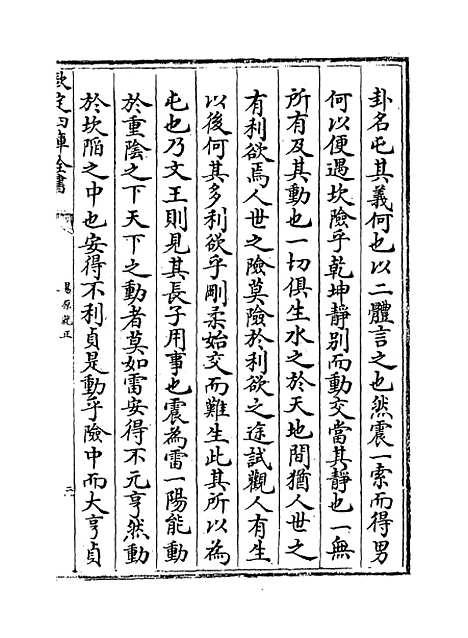 卦名屯其義何也以二體言之也然震一索而得男
何以便遇坎險乎乾坤靜别而動交當其靜也一無
所有及其動也一切俱生水之於天地間猶人世之
有利欲焉人世之險莫險於利欲之途試觀人有生
以後何其多利欲乎剛柔始交而難生此其所以為
屯也乃文王則見其長子用事也震為雷一陽能動
於重陰之下天下之動者莫如雷安得不元亨然動
於坎陷之中也安得不利貞是動乎險中而大亨貞
欽定四庫全書
易原就正
三